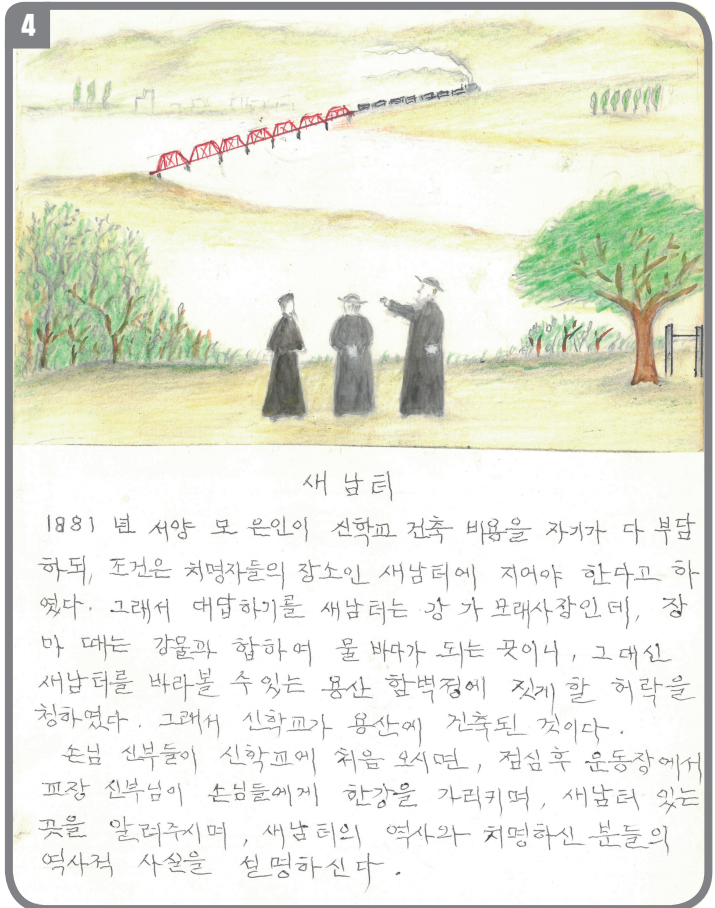 4
새남터
1881년 서양 모 은인이 신학교 건축 비용을 자기가 다 부담
하되, 조건은 치명자들의 장소인 새남터에 지어야 한다고 하
였다. 그래서 대답하기를 새남터는 강 가 모래사장인데, 장
마 때는 강물과 합하여 물 바다가 되는 곳이니, 그대신
새남터를 바라볼 수 있는 용산 함벽정에 짓게 할 허락을
청하였다. 그래서 신학교가 용산에 건축된 것이다.
손님 신부들이 신학교에 처음 오시면, 점심후 운동장에서
교장 신부님이 손님들에게 한강을 가리키며, 새남터 있는
곳을 알려주시며, 새남터의 역사와 치명하신 분들의
역사적 사실을 설명하신다.